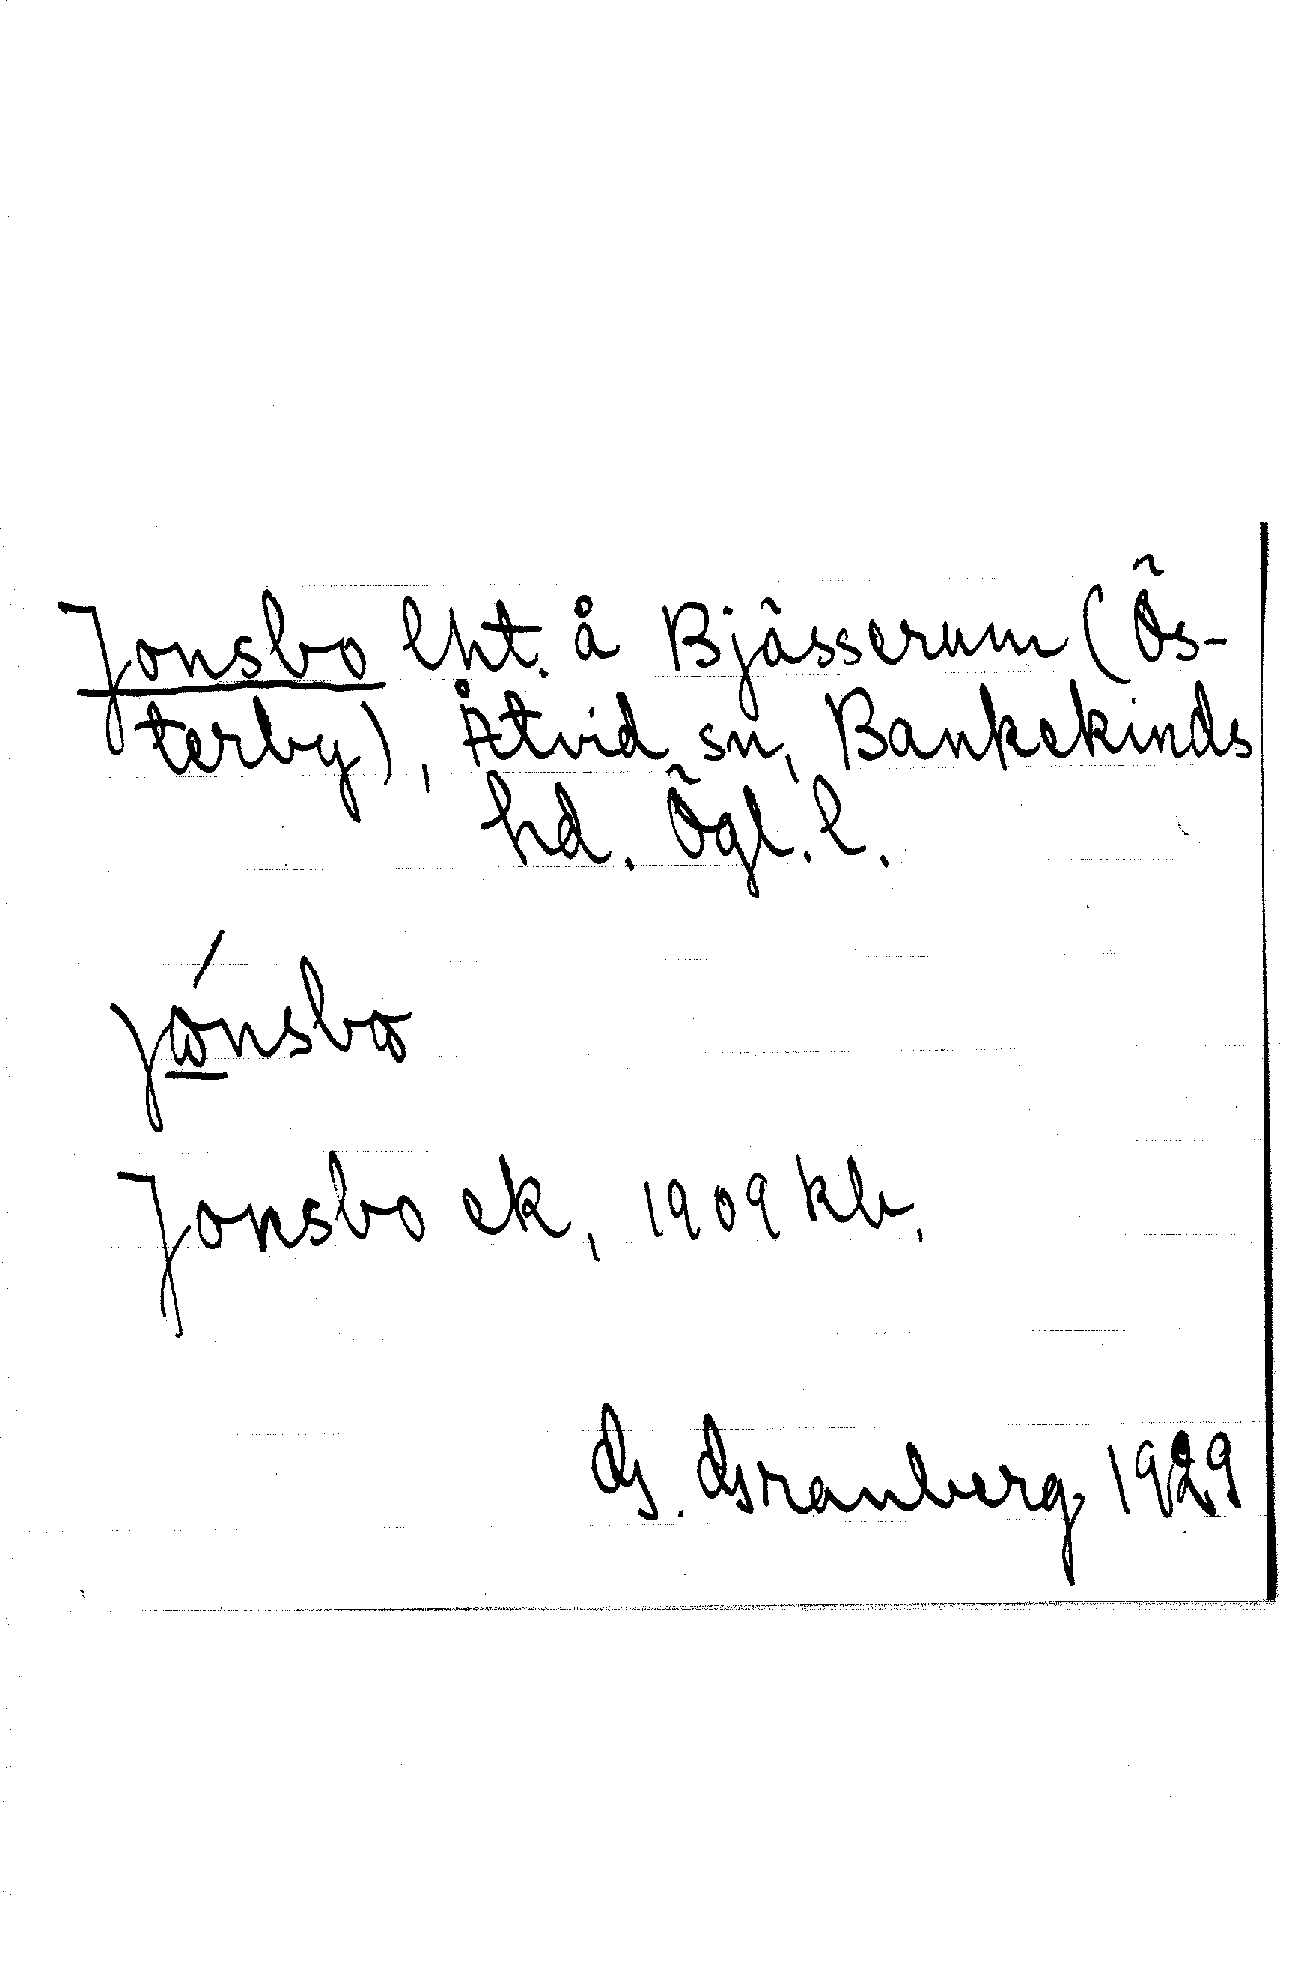 Jonsbo lht. å Bjässerum (Ös-
terby), Åtvid sn, Bankekinds
hd. Ögl. l.
jónsbo
Jonsbo ek, 1909 kb.
G. Granberg 1929